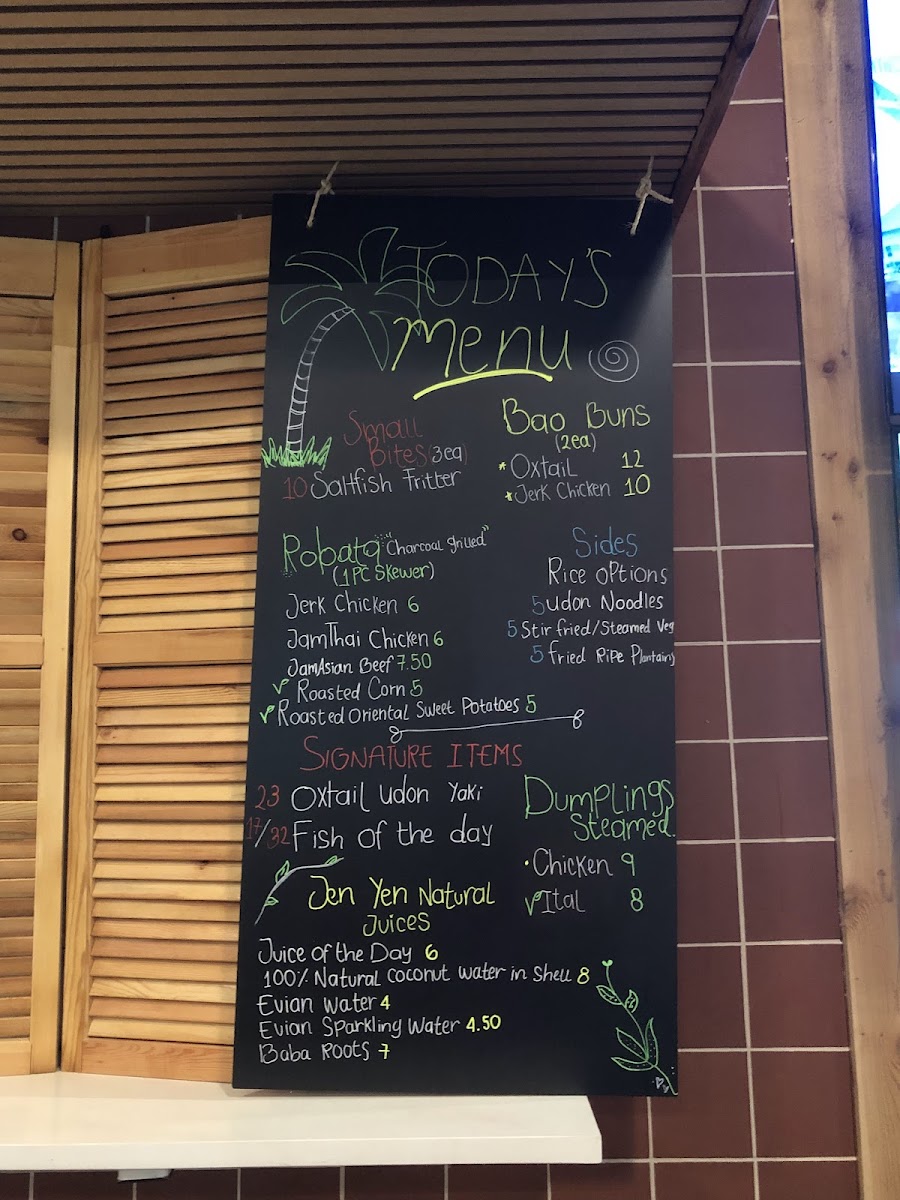 TODAY'S
Menu
Small
Bites (3ea)
10 Saltfish Fritter
Bao Buns
(2ea)
* Oxtail 12
* Jerk Chicken 10
Robata "Charcoal grilled"
(1PC Skewer)
Jerk Chicken 6
JamThai Chicken 6
JamAsian Beef 7.50
✓ Roasted Corn 5
✓ Roasted Oriental Sweet Potatoes 5
Sides
Rice Options
5 udon Noodles
5 Stir fried/Steamed Veg
5 fried Ripe Plantains
SIGNATURE ITEMS
23 Oxtail udon Yaki
17/32 Fish of the day
Dumplings
Steamed
• Chicken 9
✓ Ital 8
Jen Yen Natural
Juices
Juice of the Day 6
100% Natural coconut water in Shell 8
Evian water 4
Evian Sparkling Water 4.50
Baba Roots 7